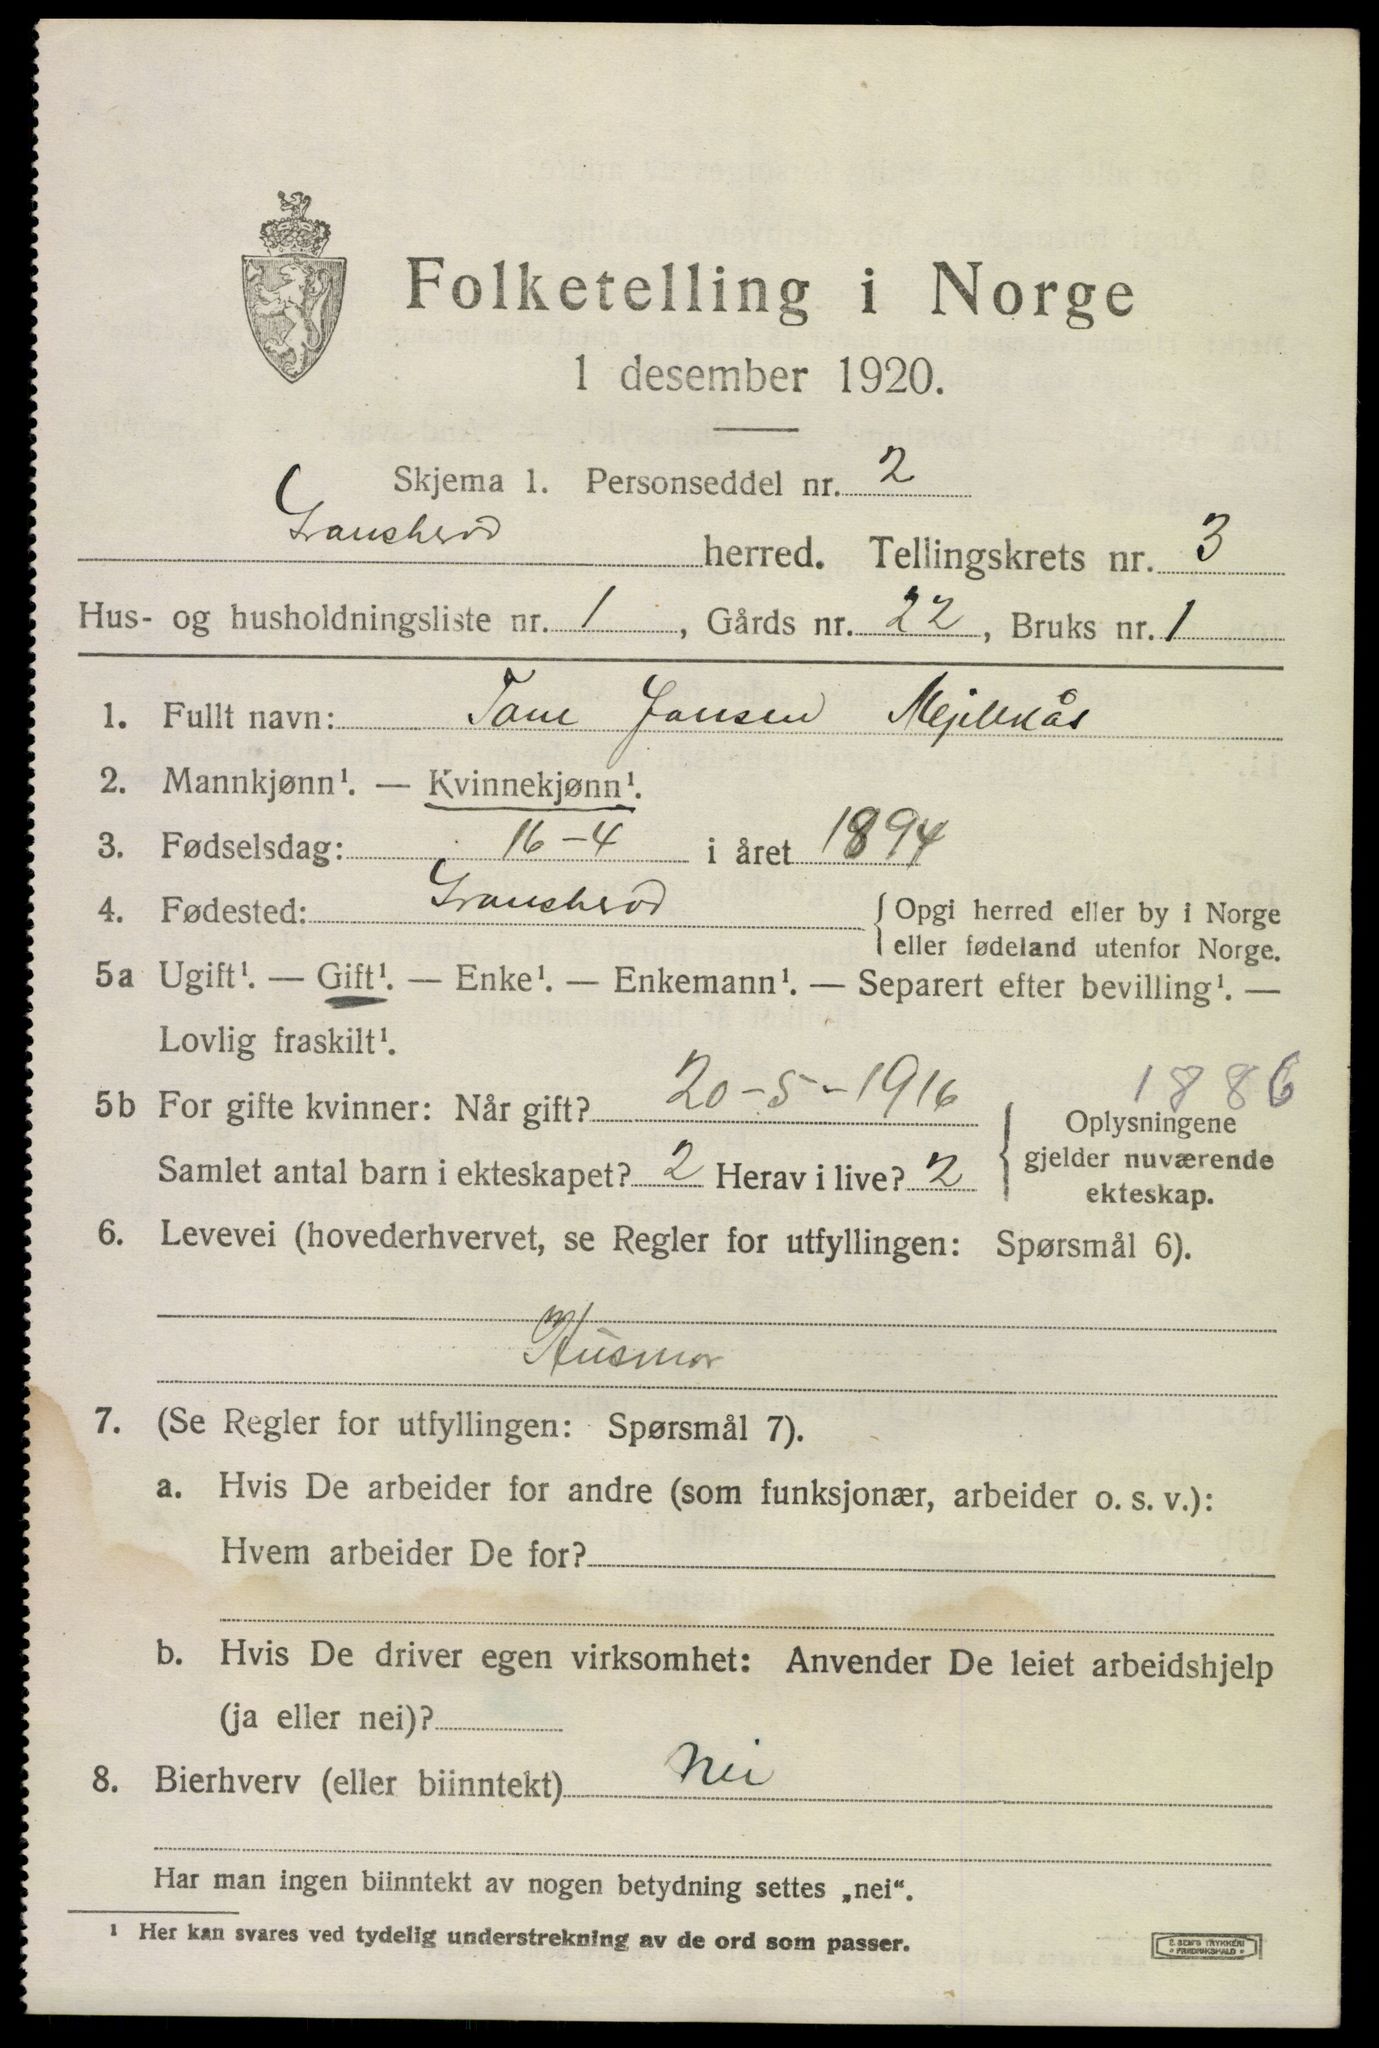 Folketelling i Norge
1 desember 1920.
Skjema 1. Personseddel nr. 2
Gransherød herred. Tellingskrets nr. 3
Hus- og husholdningsliste nr. 1, Gårds nr. 22, Bruks nr. 1
1. Fullt navn: Tone Jansen
2. Mannkjønn¹. — Kvinnekjønn¹.
3. Fødselsdag: 16-4 i året 1894
4. Fødested: Gransherød { Opgi herred eller by i Norge
eller fødeland utenfor Norge.
5a Ugift¹. — Gift¹. — Enke¹. — Enkemann¹. — Separert efter bevilling¹. —
Lovlig fraskilt¹.
1886
5b For gifte kvinner: Når gift? 20-5-1916
Samlet antal barn i ekteskapet? 2 Herav i live? 2
{ Oplysningene
gjelder nuværende
ekteskap.
6. Levevei (hovederhvervet, se Regler for utfyllingen: Spørsmål 6).
m
Husmor
7. (Se Regler for utfyllingen: Spørsmål 7).
a. Hvis De arbeider for andre (som funksjonær, arbeider o. s. v.):
Hvem arbeider De for?
b. Hvis De driver egen virksomhet: Anvender De leiet arbeidshjelp
(ja eller nei)?
8. Bierhverv (eller biinntekt) Nei
Har man ingen biinntekt av nogen betydning settes „nei“.
¹ Her kan svares ved tydelig understrekning av de ord som passer.
E. SEM'S TRYKKERI
FREDRIKSHALD